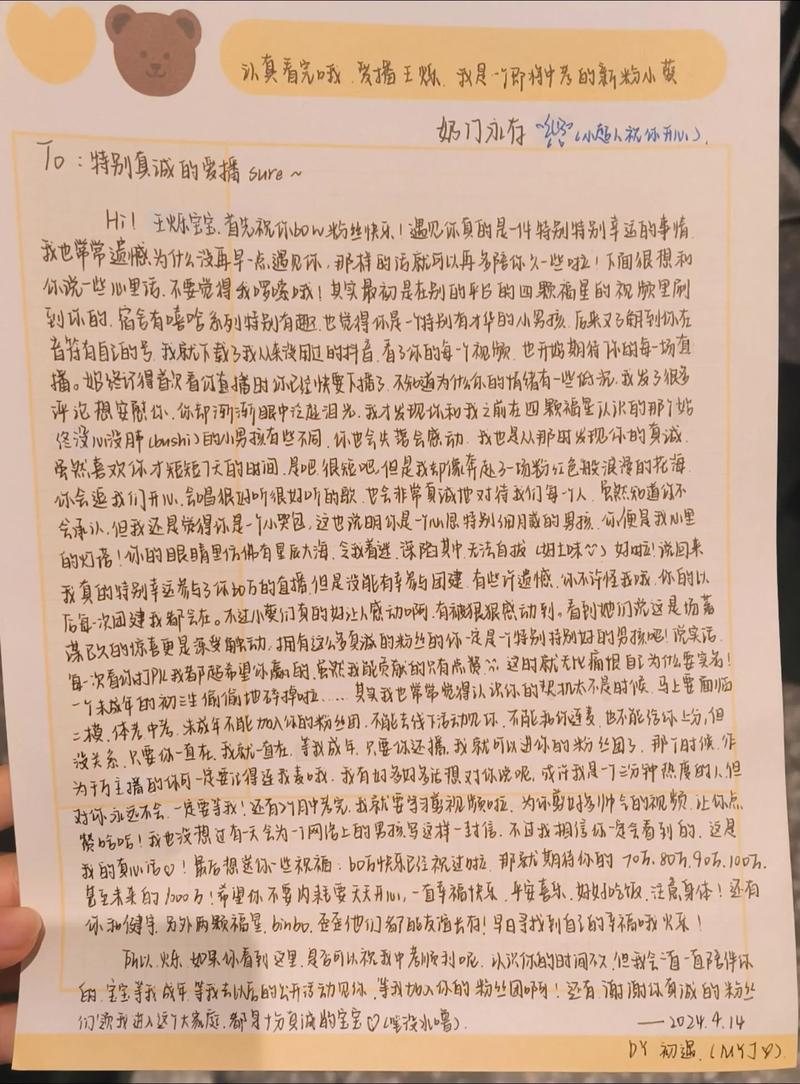 认真看完哦，爱播王烁，我是一个即将中考的新粉小葵
奶门永存 (小超人祝你开心)
To：特别真诚的爱播 sure～
Hi！王烁宝宝，首先祝你60w粉丝快乐！遇见你真的是一件特别特别幸运的事情
我也常常遗憾为什么没再早一点遇见你，那样的话就可以再多陪你久一些啦！下面很想和
你说一些心里话，不要觉得我啰嗦哦！其实最初是在别的平台的四颗福星的视频里刷
到你的，宿舍有嘻哈系列特别有趣，也觉得你是一个特别有才华的小男孩，后来又了解到你在
音符有自己的号，我就下载了我从来没用过的抖音，看了你的每一个视频，也开始期待你的每一场直
播。始终记得首次看你直播时你已经快要下播了，不知道为什么你的情绪有一些低沉，我发了很多
评论想安慰你，你却渐渐眼中泛起泪光，我才发现你和我之前在四颗福星认识的那个始
终没心没肺(bushi)的小男孩有些不同，你也会失落会感动，我也是从那时发现你的真诚，
虽然喜欢你才短短7天的时间，是吧，很短吧，但是我却像奔赴了一场粉红色般浪漫的花海，
你会逗我们开心，会唱很好听很好听的歌，也会非常真诚地对待我们每一个人，虽然知道你不
会承认，但我还是觉得你是一个小哭包，这也说明你是一个心思特别细腻的男孩，你便是我心里
的灯塔！你的眼睛里仿佛有星辰大海，令我着迷，深陷其中，无法自拔（好土味～）好啦！说回来
我真的特别幸运参与了你60万的直播，但是没能有幸参与团建，有些许遗憾，你不许怪我哦，你的以
后每一次团建我都会在。不过小葵们真的好让人感动啊，有被狠狠感动到。看到她们说这是场蓄
谋已久的惊喜更是深受触动，拥有这么多真诚的粉丝的你一定是个特别特别好的男孩吧！说实话，
每一次看你打PK我都超希望你赢的，虽然我能贡献的只有点赞，这时就无比痛恨自己为什么要实名！
一个未成年的初三生偷偷地碎掉啦……其实我也常常觉得认识你的契机太不是时候，马上要面临
二模、体考中考，未成年不能加入你的粉丝团，不能去线下活动见你，不能和你连麦，也不能给你上分，但
没关系，只要你一直在，我就一直在，等我成年，只要你还播，我就可以进你的粉丝团了，那个时候，作
为千万主播的你可一定要记得连我麦哦，我有好多好多话想对你说呢，或许我是一个三分钟热度的人，但
对你永远不会，一定要等我！还有2个月中考完，我就要学习剪视频啦，为你剪好多帅气的视频，让你点
赞哈哈！我也没想过有一天会为一个网络上的男孩写这样一封信，不过我相信你一定会看到的，这是
我的真心话♡！最后想送你一些祝福：60万快乐已经祝过啦，那就期待你的70万、80万、90万、100万，
甚至未来的1000万！希望你不要内耗要天天开心，一直幸福快乐，平安喜乐，好好吃饭，注意身体！还有
你和健等，另外两颗福星，binbo，歪歪他们都能友谊长存！早日寻找到自己的幸福哦火乐！
所以，烁，如果你看到这里，是否可以祝我中考顺利呢，认识你的时间不久，但我会一直一直陪伴你
的，宝宝等我成年，等我去以后的公开活动见你，等我加入你的粉丝团啊！还有，谢谢你真诚的粉丝
们领我进入这个大家庭，都是十分真诚的宝宝♡
——2024.4.14
DY 初遇.(MYJ♡)